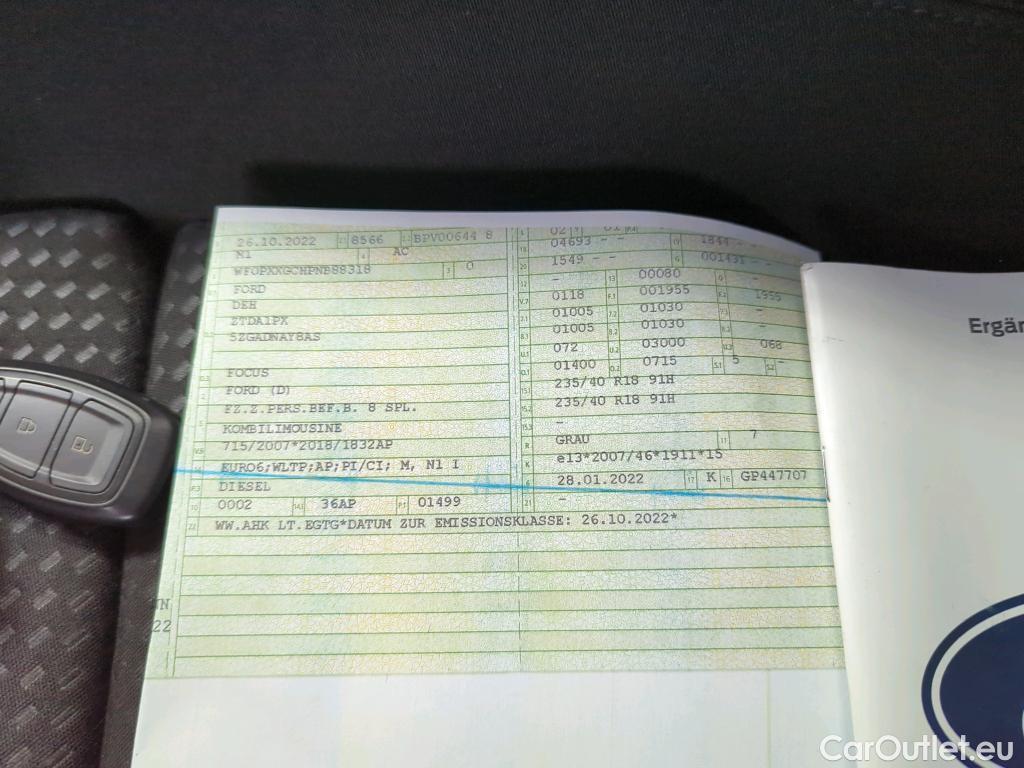 26.10.2022 8566 BPV00644 8
N1 AC
WF0PXXGCHPNB88318 0
FORD
DEH
ZTDA1PX
5ZGADNAY8AS
FOCUS
FORD (D)
FZ.Z.PERS.BEF.B. 8 SPL.
KOMBILIMOUSINE
715/2007*2018/1832AP
EURO6;WLTP;AP;PI/CI; M, N1 I
DIESEL
0002 36AP 01499
02 01
04693 -- 1844 -
1549 -- 001431 -
- 00080 -
0118 001955 1955
01005 01030 -
01005 01030 -
072 03000 068
01400 0715 5 -
235/40 R18 91H
235/40 R18 91H
-
GRAU 7
e13*2007/46*1911*15
28.01.2022 K GP447707
-
WW.AHK LT.EGTG*DATUM ZUR EMISSIONSKLASSE: 26.10.2022*
22
Ergän
CarOutlet.eu